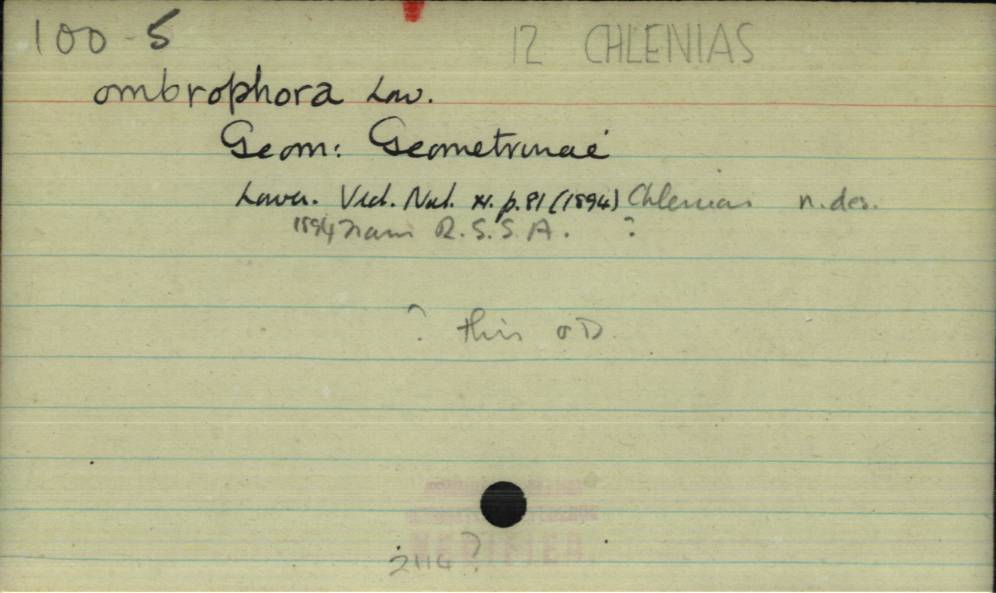 100-5
12 CHLENIAS
ombrophora Low.
Geom: Geometrinae
Lower. Vict. Nat. XI. p.81 (1894) Chlenias n.des.
1894 Trans R.S.S.A. ?
? this OD
VERIFIED
2114?